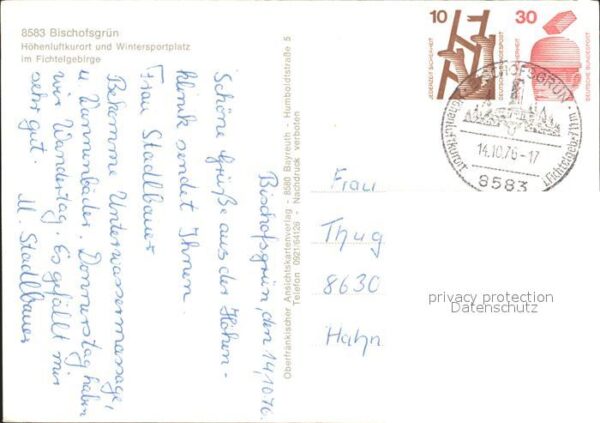 8583 Bischofsgrün
Höhenluftkurort und Wintersportplatz
im Fichtelgebirge
Bischofsgrün, den 14.10.76
Schöne Grüße aus der Höhen-
klinik sendet Ihnen
Frau Stadlbauer
Bekomme Unterwassermassage,
u. Wannenbäder. Donnerstag haben
wir Wandertag. Es gefällt mir
sehr gut. M. Stadlbauer
Oberfränkischer Ansichtskartenverlag - 8580 Bayreuth - Humboldtstraße 5
Telefon 0921/64126 - Nachdruck verboten
10
JEDERZEIT SICHERHEIT
DEUTSCHE BUNDESPOST
30
SICHERHEIT
DEUTSCHE BUNDESPOST
BISCHOFSGRÜN
Höhenluftkurort
14.10.76-17
8583
Frau
Thug
8630
Hahn
privacy protection
Datenschutz